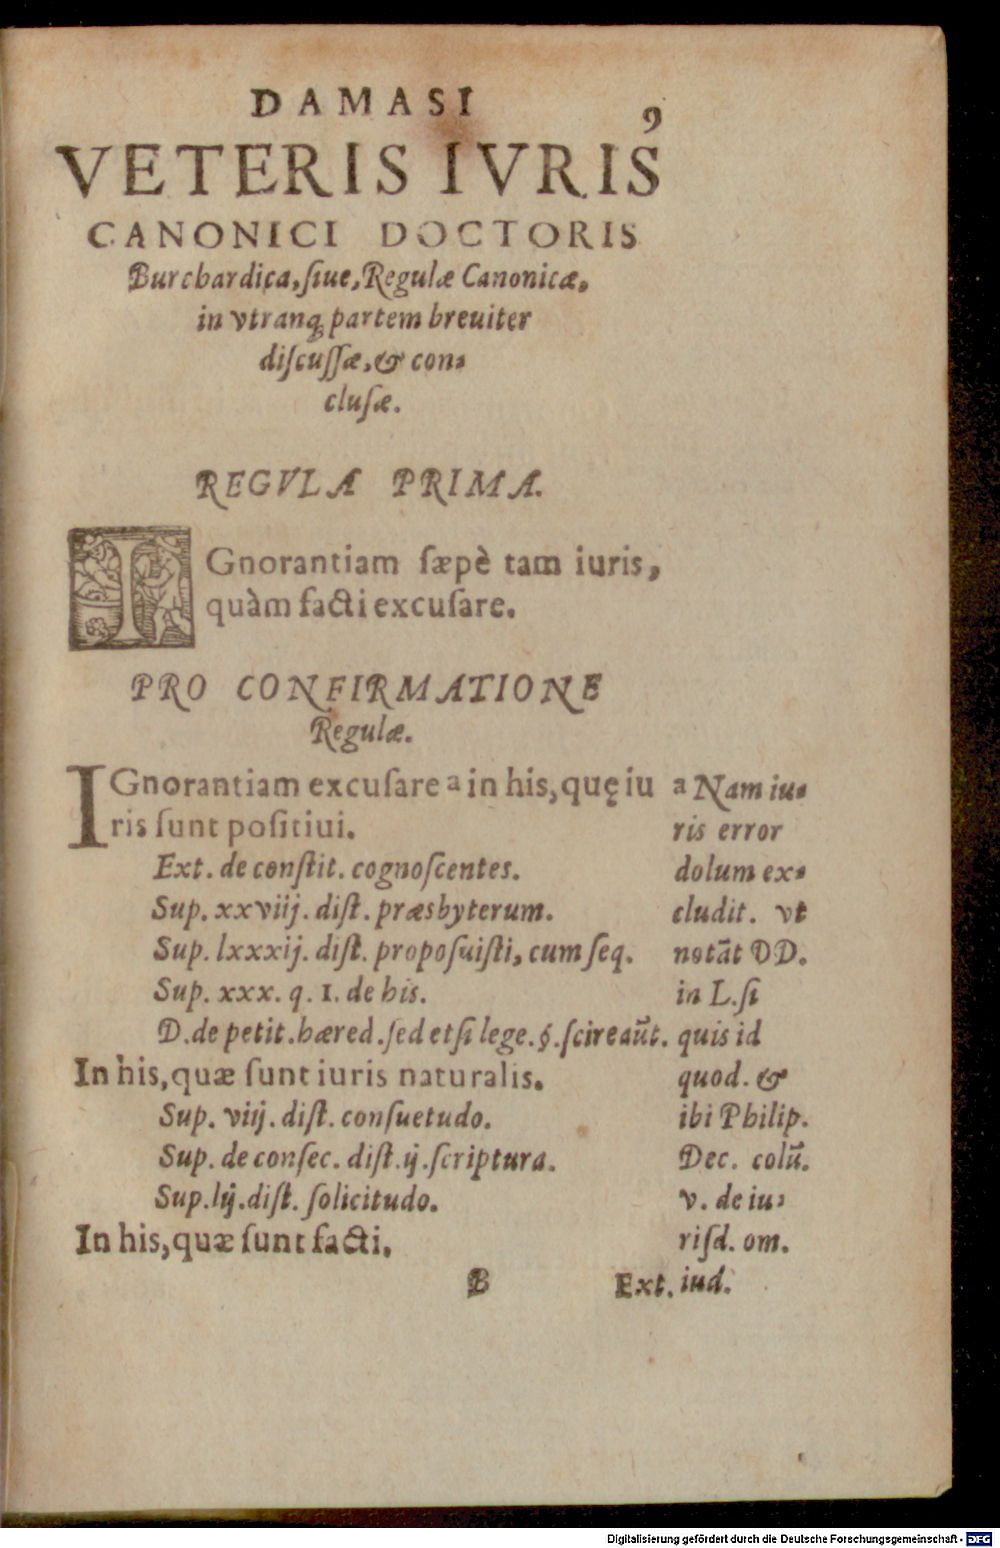 DAMASI
9
VETERIS IVRIS
CANONICI DOCTORIS
Burchardica, ſiue, Regulæ Canonicæ,
in vtranq; partem breuiter
diſcuſſæ, & con-
cluſæ.
REGVLA PRIMA.
IGnorantiam ſæpè tam iuris,
quàm facti excuſare.
PRO CONFIRMATIONE
Regulæ.
IGnorantiam excuſare a in his, quę iu
ris ſunt poſitiui.
Ext. de conſtit. cognoſcentes.
Sup. xxviij. diſt. præsbyterum.
Sup. lxxxij. diſt. propoſuiſti, cum ſeq.
Sup. xxx. q. 1. de his.
D. de petit. hæred. ſed etſi lege. §. ſcire aūt.
In his, quæ ſunt iuris naturalis.
Sup. viij. diſt. conſuetudo.
Sup. de conſec. diſt. ij. ſcriptura.
Sup. lij. diſt. ſolicitudo.
In his, quæ ſunt facti.
B
Ext.
a Nam iu-
ris error
dolum ex-
cludit. vt
notāt DD.
in L. ſi
quis id
quod. &
ibi Philip.
Dec. colū.
v. de iu-
riſd. om.
iud.
Digitalisierung gefördert durch die Deutsche Forschungsgemeinschaft - DFG